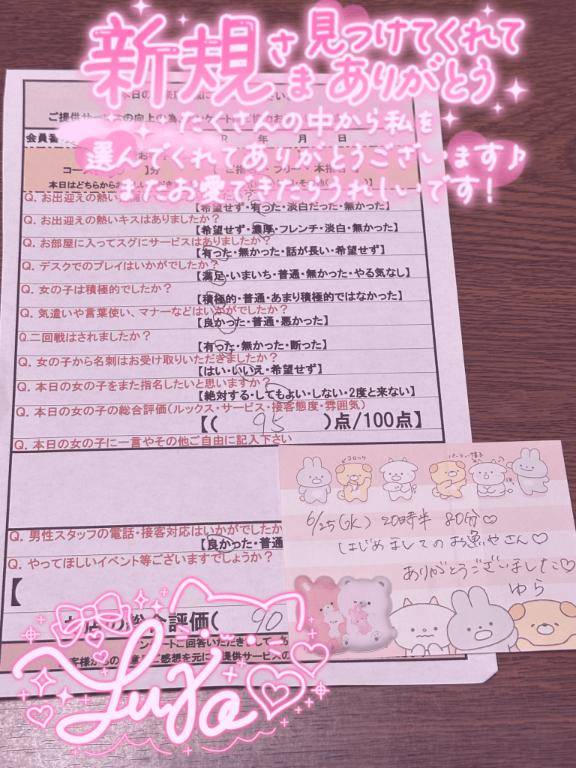 新規さま 見つけてくれて
ありがとう
たくさんの中から私を
選んでくれてありがとうございます♪
またお愛できたらうれしいです！
本日の
ご提供サービスの向上の為
会員番
R 年 月 日
コース
Q. お出迎えの熱い
【希望せず・有った・淡白だった・無かった】
Q. お出迎えの熱いキスはありましたか？
【希望せず・濃厚・フレンチ・淡白・無かった】
Q. お部屋に入ってスグにサービスはありましたか？
【有った・無かった・話が長い・希望せず】
Q. デスクでのプレイはいかがでしたか？
【満足・いまいち・普通・無かった・やる気なし】
Q. 女の子は積極的でしたか？
【積極的・普通・あまり積極的ではなかった】
Q. 気遣いや言葉使い、マナーなどはいかがでしたか？
【良かった・普通・悪かった】
Q.二回戦はされましたか？
【有った・無かった・断った】
Q. 女の子から名刺はお受け取りいただきましたか？
【はい・いいえ・希望せず】
Q. 本日の女の子をまた指名したいと思いますか？
【絶対する・してもよい・しない・2度と来ない】
Q. 本日の女の子の総合評価（ルックス・サービス・接客態度・雰囲気）
【（ 95 ）点/100点】
Q. 本日の女の子に一言やその他ご自由に記入下さい
Q. 男性スタッフの電話・接客対応はいかがでしたか
【良かった・普通
Q. やってほしいイベント等ございますでしょうか？
【
総合評価（ 90
コロッケ
6/25(水) 20時半 80分♡
はじめましてのお客やさん♡
ありがとうございました♡
ゆら
Yura